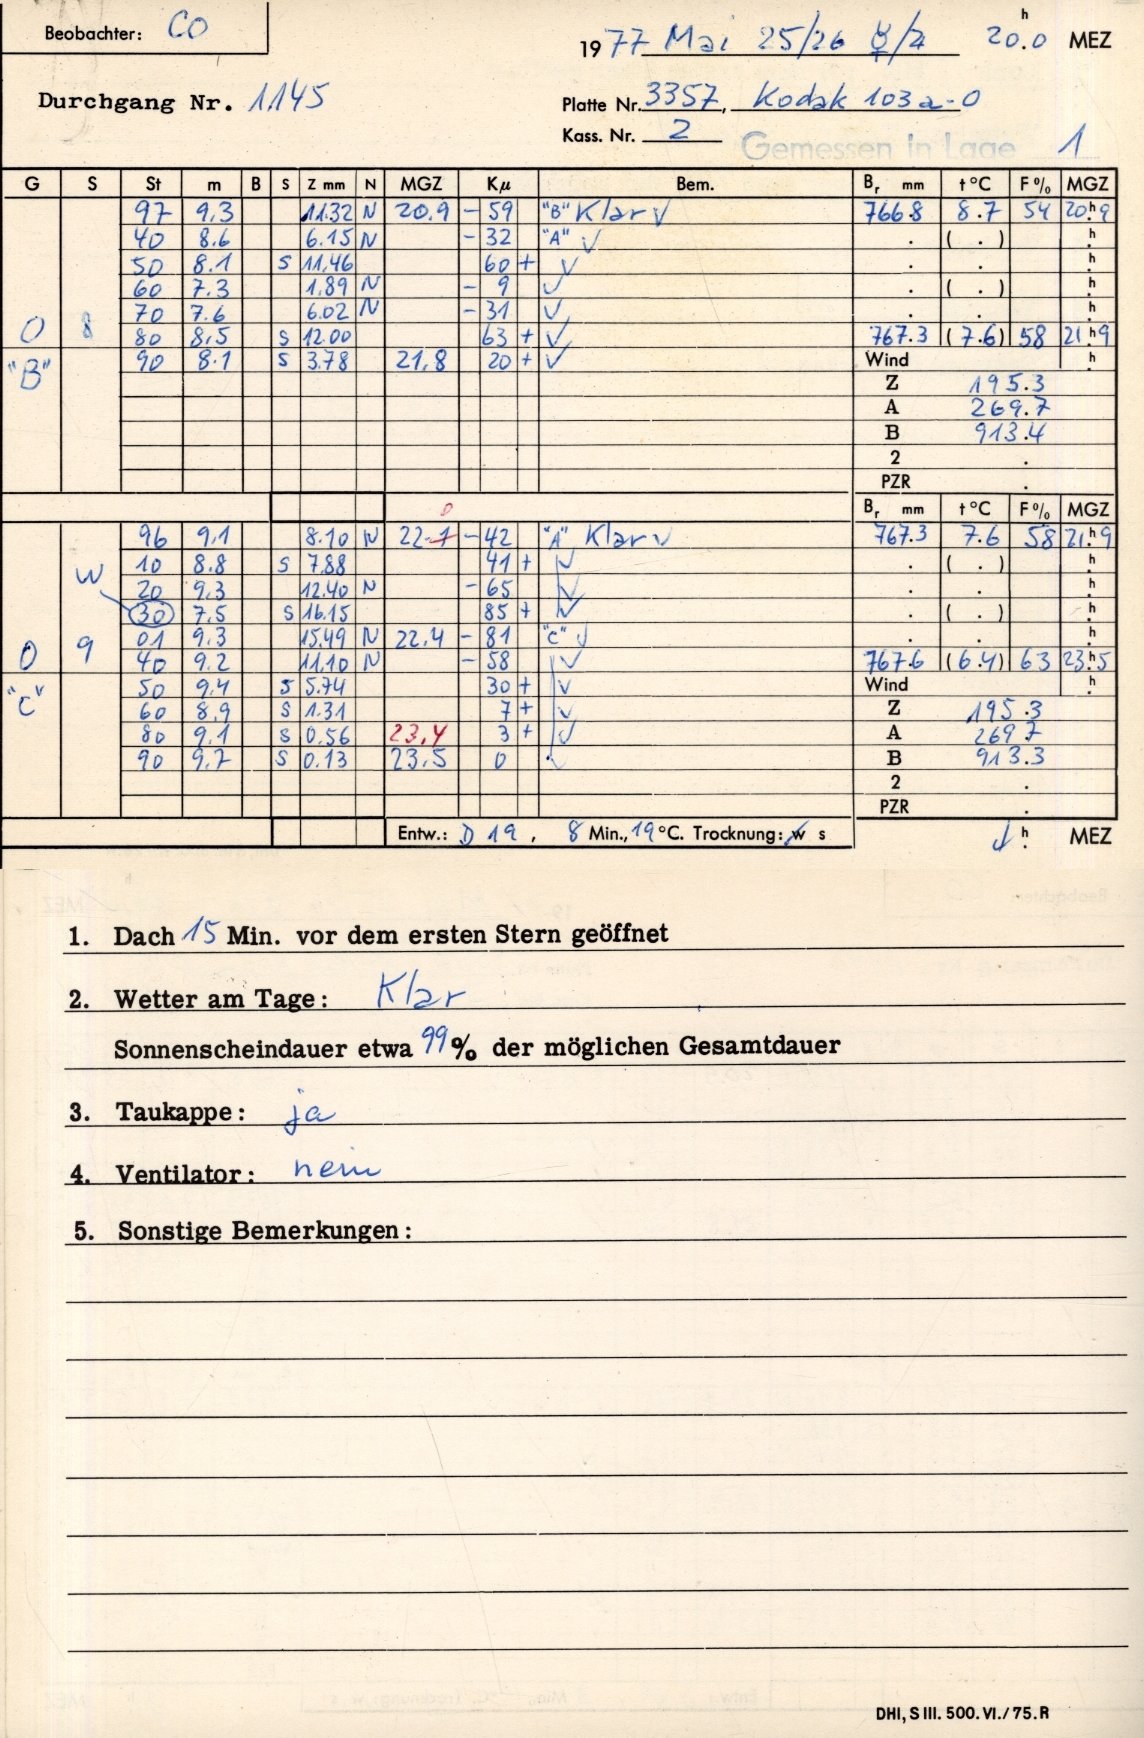 Beobachter: CO
1977 Mai 25/26 ☿/♃ 20.0 h MEZ
Durchgang Nr. 1145
Platte Nr. 3357, Kodak 103a-O
Kass. Nr. 2
Gemessen in Lage 1
G S St m B S Z mm N MGZ Kμ Bem. Br mm t °C F % MGZ
97 9.3 11.32 N 20.9 - 59 "B" Klar √ 766.8 8.7 54 20h9
40 8.6 6.15 N - 32 "A" √ . ( . ) h
50 8.1 S 11.46 60 + √ . . h
60 7.3 1.89 N - 9 √ . ( . ) h
70 7.6 6.02 N - 31 √ . . h
0 8 80 8.5 S 12.00 63 + √ 767.3 (7.6) 58 21h9
"B" 90 8.1 S 3.78 21.8 20 + √ Wind h
Z 195.3
A 269.7
B 913.4
2 .
PZR .
0 Br mm t °C F % MGZ
96 9.1 8.10 N 22.1 - 42 "A" Klar √ 767.3 7.6 58 21h9
W 10 8.8 S 7.88 41 + √ . ( . ) h
20 9.3 12.40 N - 65 √ . . h
30 7.5 S 16.15 85 + √ . ( . ) h
01 9.3 15.49 N 22.4 - 81 "C" √ . . h
0 9 40 9.2 11.10 N - 58 √ 767.6 (6.4) 63 23h5
"C" 50 9.4 S 5.74 30 + √ Wind h
60 8.9 S 1.31 7 + √ Z 195.3
80 9.1 S 0.56 23.4 3 + √ A 269.7
90 9.7 S 0.13 23.5 0 √ B 913.3
2 .
PZR .
Entw.: D 19, 8 Min., 19 °C. Trocknung: w s √ h MEZ
1. Dach 15 Min. vor dem ersten Stern geöffnet
2. Wetter am Tage: Klar
Sonnenscheindauer etwa 99 % der möglichen Gesamtdauer
3. Taukappe: ja
4. Ventilator: nein
5. Sonstige Bemerkungen:
DHI, S III. 500. VI./75. R